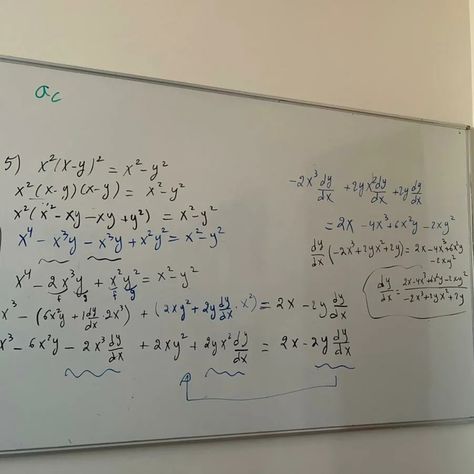 ac
5) x²(x-y)² = x²-y²
x²(x-y)(x-y) = x²-y²
x²(x²-xy-xy+y²) = x²-y²
x⁴-x³y-x³y+x²y² = x²-y²
x⁴-2x³y+x²y² = x²-y²
x³-(6x²y+1dy/dx·2x³)+(2xy²+2y dy/dx·x²) = 2x-2y dy/dx
x³-6x²y-2x³dy/dx+2xy²+2yx²dy/dx = 2x-2y dy/dx
-2x³dy/dx+2yx²dy/dx+2y dy/dx
=2x-4x³+6x²y-2xy²
dy/dx(-2x³+2yx²+2y) = 2x-4x³+6x²y
-2xy²
dy/dx = 2x-4x³+6x²y-2xy²/-2x³+2yx²+2y